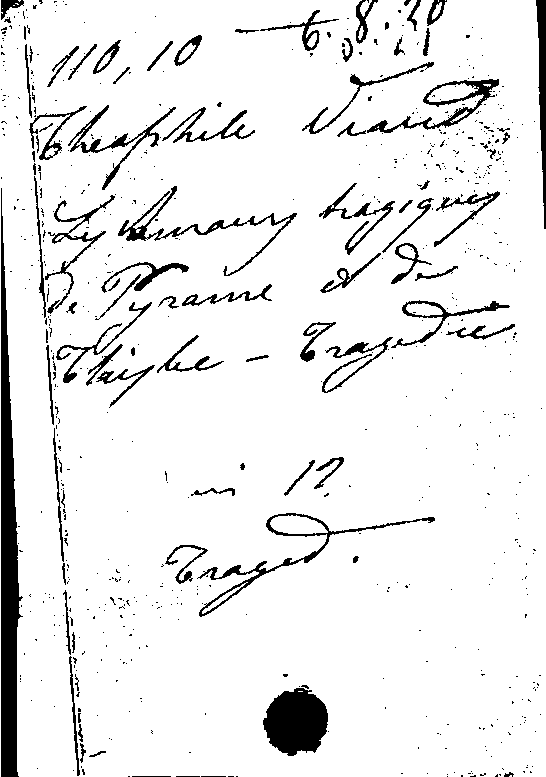 110,10 — 6.8.20
Theophile Viaud
Les Amours tragiques
de Pyrame et de
Thisbe — Tragedie
in 12
Traged.